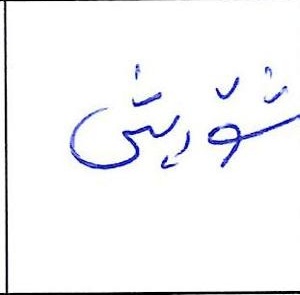 شۆڕشی